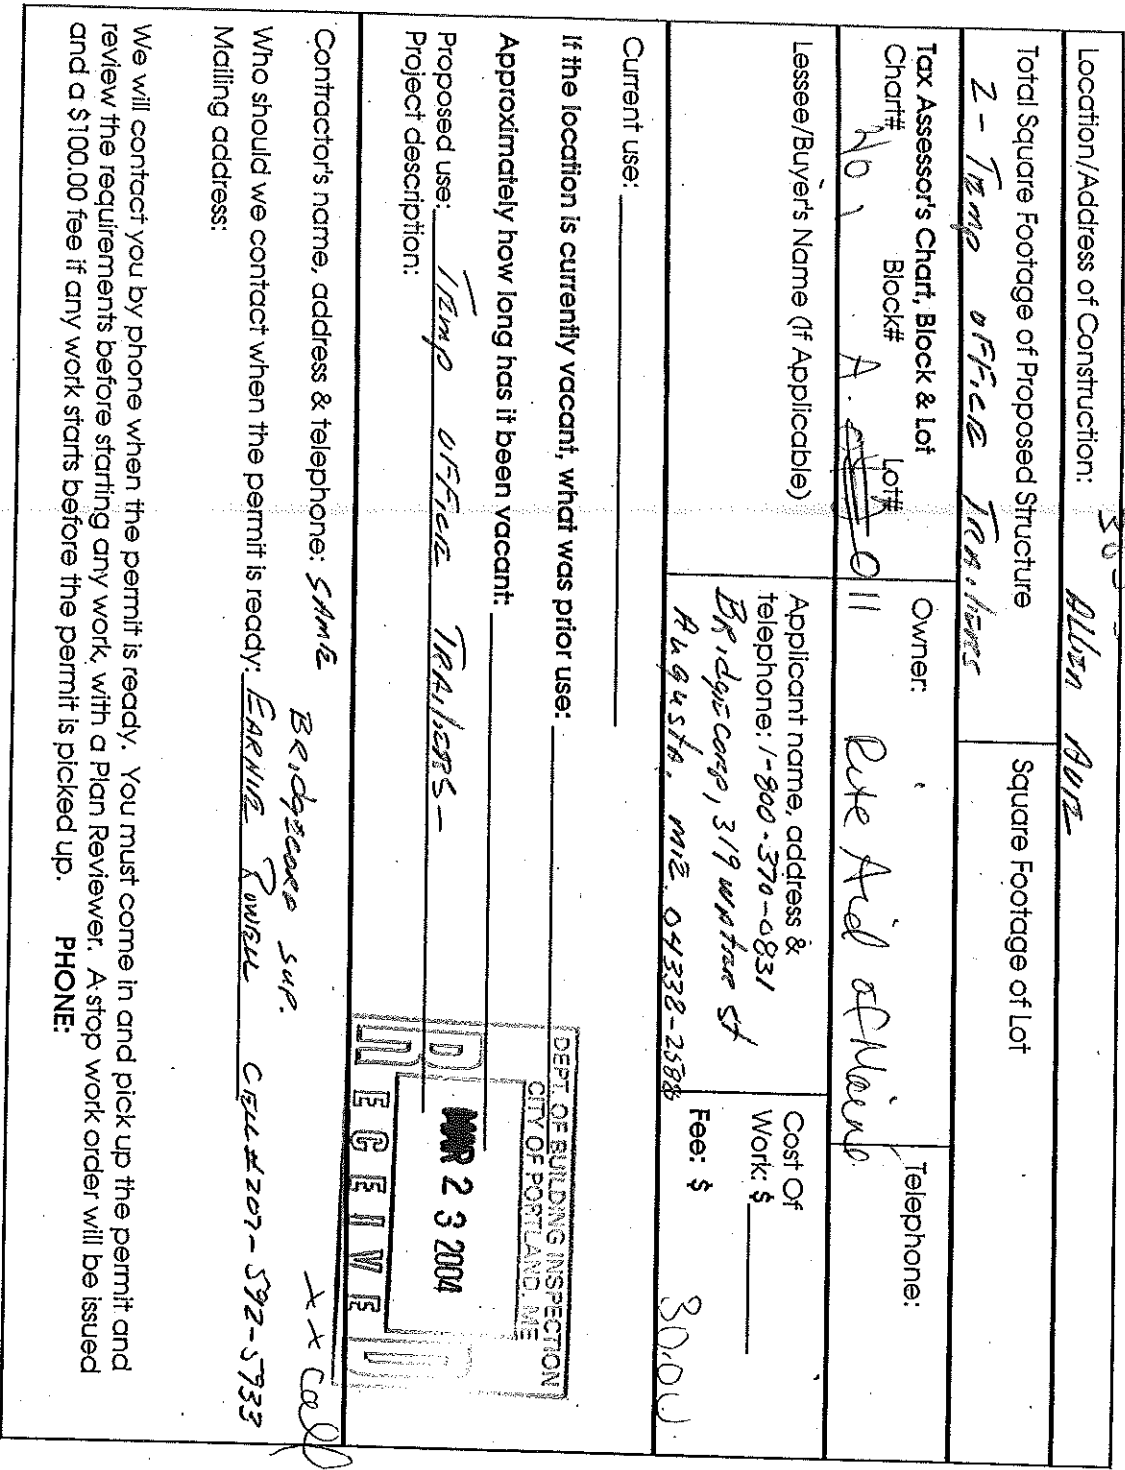 Location/Address of Construction: Allen Ave
Total Square Footage of Proposed Structure
2 - Temp office Trailers
Square Footage of Lot
Tax Assessor's Chart, Block & Lot
Chart# Block# Lot#
A 011
Owner:
Rite Aid of Maine
Telephone:
Lessee/Buyer's Name (If Applicable)
Applicant name, address &
telephone: 1-800-370-0831
Bridgecorp, 319 water St
Augusta, me. 04338-2588
Cost Of
Work: $
Fee: $ 30.00
Current use:
If the location is currently vacant, what was prior use:
Approximately how long has it been vacant:
Proposed use: Temp office Trailers -
Project description:
DEPT. OF BUILDING INSPECTION
CITY OF PORTLAND, ME
MAR 23 2004
RECEIVED
Contractor's name, address & telephone: Same
Bridgecorp sup. x x Call
Who should we contact when the permit is ready: Earnie Rowell Cell #207-592-5933
Mailing address:
We will contact you by phone when the permit is ready. You must come in and pick up the permit and
review the requirements before starting any work, with a Plan Reviewer. A stop work order will be issued
and a $100.00 fee if any work starts before the permit is picked up. PHONE: